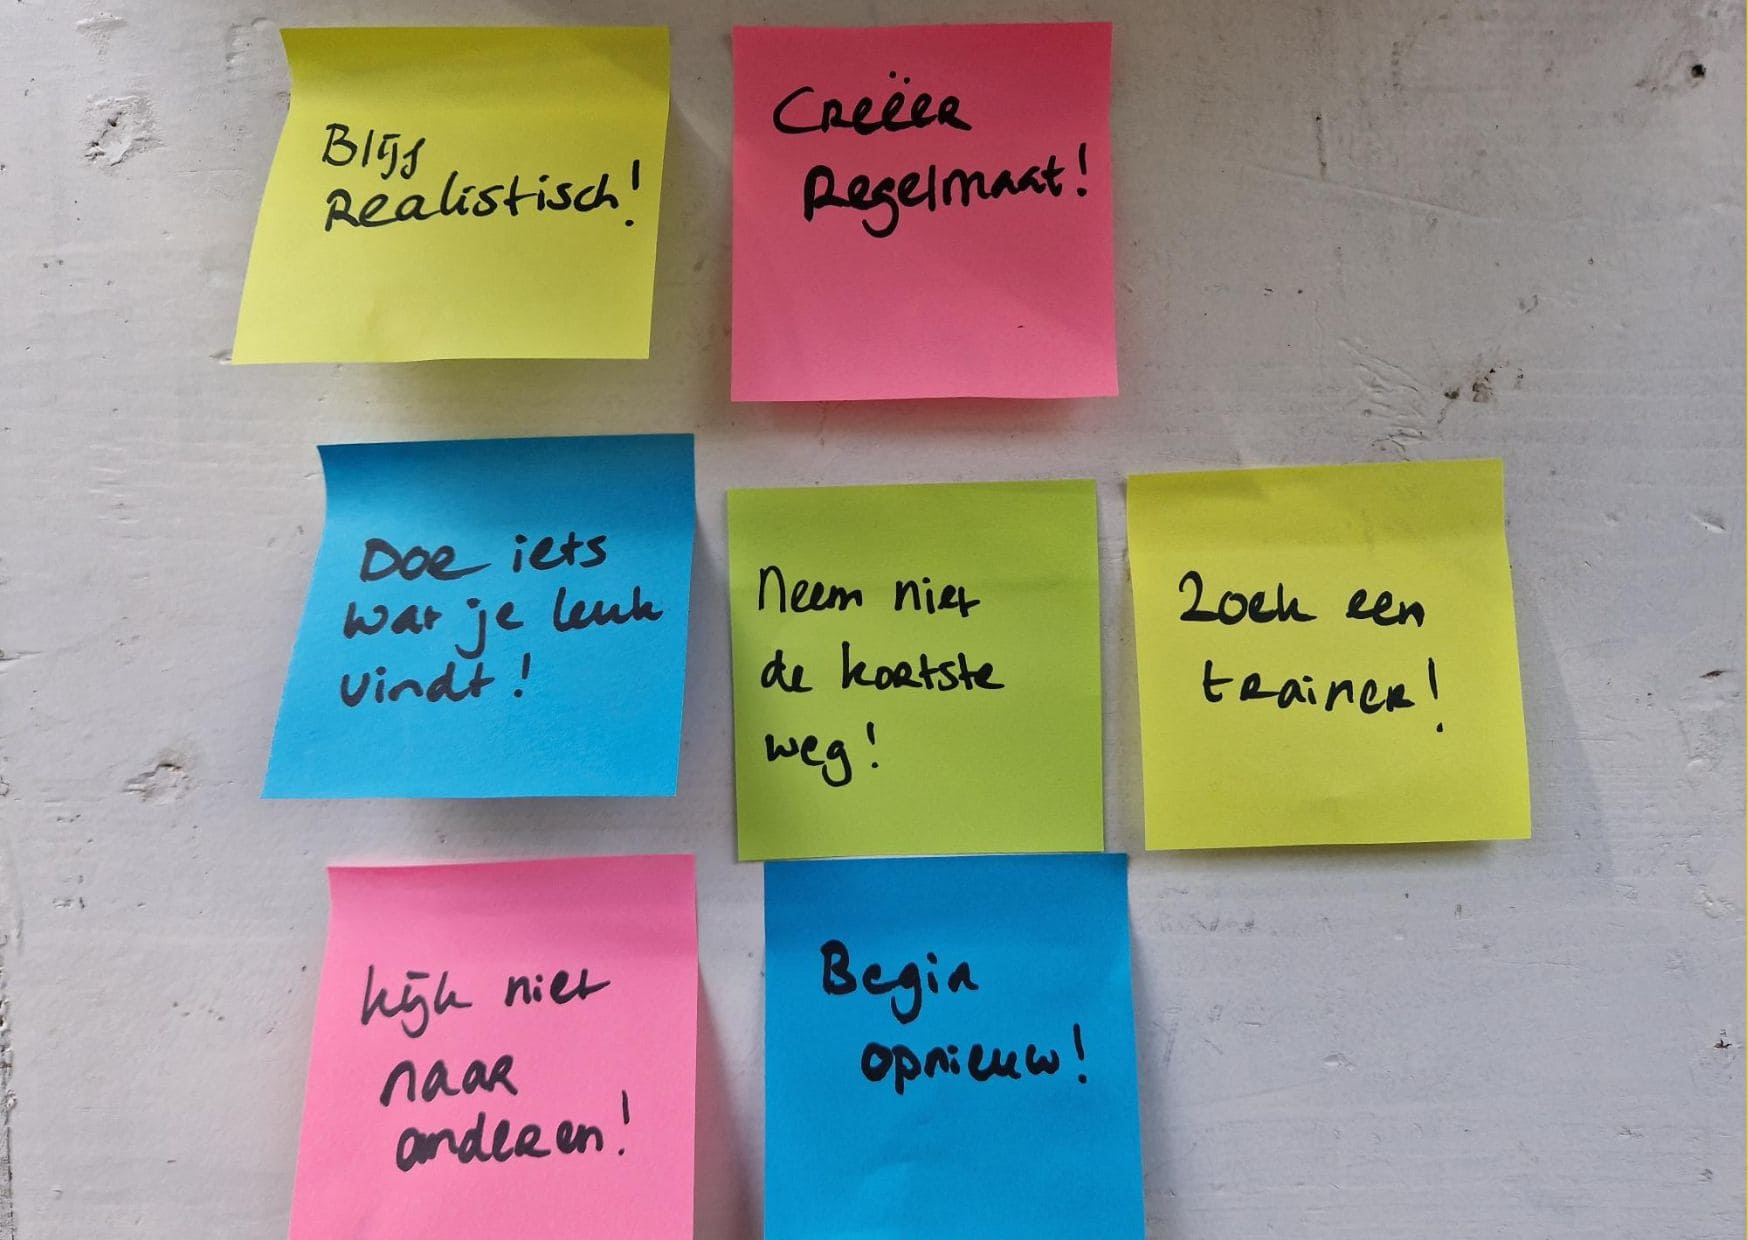 Blijf
Realistisch!
Creëer
Regelmaat!
Doe iets
wat je leuk
vindt!
Neem niet
de kortste
weg!
Zoek een
trainer!
kijk niet
naar
anderen!
Begin
opnieuw!